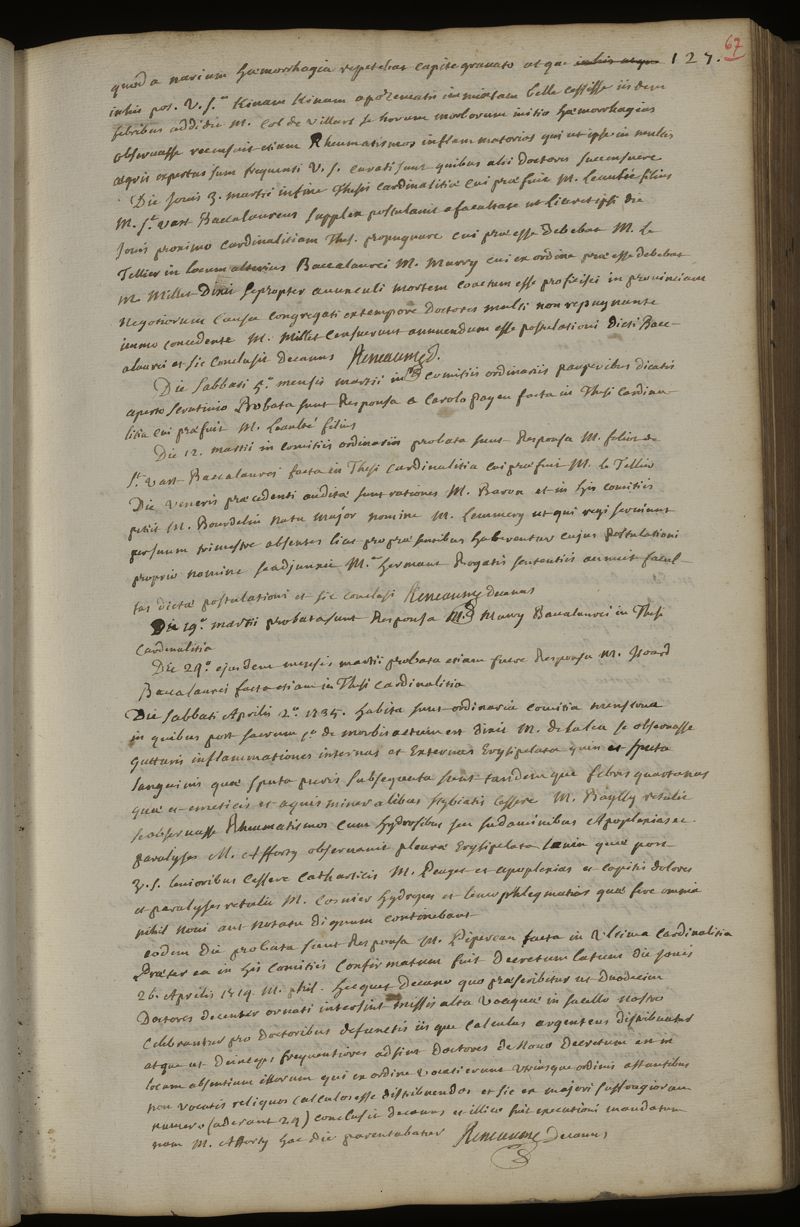 67
quod a narium hæmorrhagia repetebat capite gravato atque inhis atque 127.
inhis post. V. S.em Kinam Kinam apozematis immixtam belle cessisse iisdem
febribus addidit M. Col de Villars se horum morborum initio hæmorrhagias
observasse recensuit etiam Rheumatismos inflammatorios qui ut ipse in multis
ægris expertus sum frequenti V. S. curati sunt quibus alii doctores succensuere
Die Jovis 3. martii in fine Thesis Cardinalitiæ cui præfuit M. Leaulté filius
M. St. vast Baccalaureus supplex postulavit a facultate ut liceret ipsi die
Jovis proximo Cardinalitiam Thes. propugnare cui præesse debebat M. Le
Tellier in locum alterius Baccalaurei M. Murry cui ex ordine præesse debebat
M. Millet Dixit se propter avunculi mortem coactum esse proficisci in provinciam
Negotiorum causa congregati extempore Doctores multi non repugnante
immo concedente M. Millet censuerunt annuendum esse postulationi dicti Bacc-
alaurei et sic conclusit decanus Reneaume d.
Die Sabbati 5.a mensis martii in comitiis ordinariis pauperibus dicatis
aperto scrutinio Probata sunt Responsa a Carolo payen facta in Thesi Cardina
litia cui præfuit M. Leaulté filius
Die 12. martii in comitiis ordinariis probata sunt Responsa M. filior de
St. vast Baccalaurei facta in Thesi Cardinalitia cui præfuit M. le Tellier
Die veneris præcedenti auditæ sunt rationes M. Baron et in his comitiis
petiit M. Bourdelin natu major nomine M. Lemmery ut qui regi serviunt
per suum trimestre absentes licet pro præsentibus haberentur cujus postulationi
proprio nomine se adjunxit M.r hermant Rogatis sententiis annuit facul-
tas dictæ postulationi et sic conclusi Reneaume decanus
Die 19.a martii probata sunt Responsa M. Murry Baccalaurei in Thesi
Cardinalitia
Die 24.a ejusdem mensis martii probata etiam fuere Responsa M.
Baccalaurei facta etiam in Thesi Cardinalitia
Die Sabbati Aprilis 2.a 1735. habita sunt ordinaria comitia menstrua
in quibus post sacrum 1.o de morbis actum est dixit M. de Salea se observasse
Gutturis inflammationes internas et Externas Erysipelata quin et sputa
sanguinis quæ sputa puris subsequuta sunt tandem que febres quartanas
quæ et emeticis et aquis mineralibus stybiatis cessere M. Baylly retulit
se observasse Rheumatismos cum hydrosibus seu sudaminibus Apoplexias ac
paralyses M. Afforty observavit pleura Erysipelata quæ post
V. S. lenioribus cessere Catharticis M. Peaget et apoplexias et capitis dolores
et paralyses retulit M. Cosnier hydropes et leucophlegmatias quæ fere omnia
nihil novi aut notatu dignum continebant
eodem die probata sunt Responsa M. Pipereau facta in Ultima Cardinalitia
Præter ea in his comitiis Confirmatum fuit Decretum latum die Jovis
26. Aprilis 1714. M. phil. Hecquet Decano quo præscribitur ut Duodecim
Doctores decenter ornati intersint missis alta voce quæ in sacello nostro
Celebrantur pro Doctoribus defunctis iis que Calculus argenteus distribuatur
atque ut deinceps frequentiores adsint doctores de Novo Decretum est in
locum absentium illorum qui ex ordine vocati erunt utriusque ordinis astantibus
non vocatis reliquos calculos esse distribuendos et sic ex majori suffragiorum
numero (aderant 24) conclusit decanus et illico fuit executioni mandatum
nam M. Afforty hac die parentabatur Reneaume Decanus